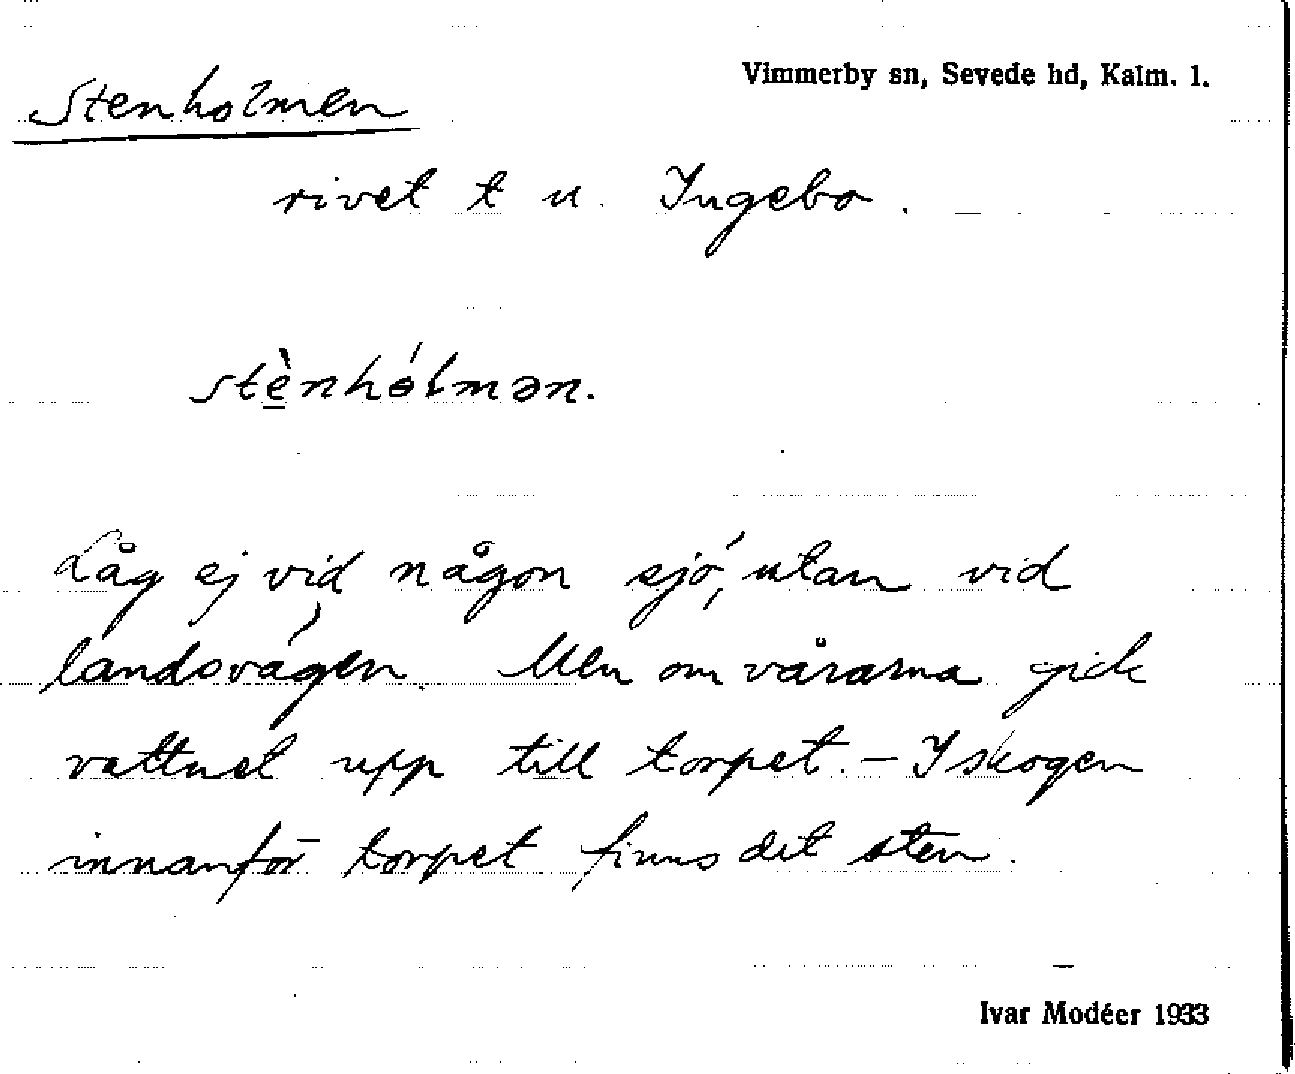 Vimmerby sn, Sevede hd, Kalm. l.
Stenholmen
rivet t u. Ingebo.
stè̱nhólmən.
Låg ej vid någon sjö, utan vid
landsvägen. Men om vårarna gick
vattnet upp till torpet. – I skogen
innanför torpet finns det sten.
Ivar Modéer 1933